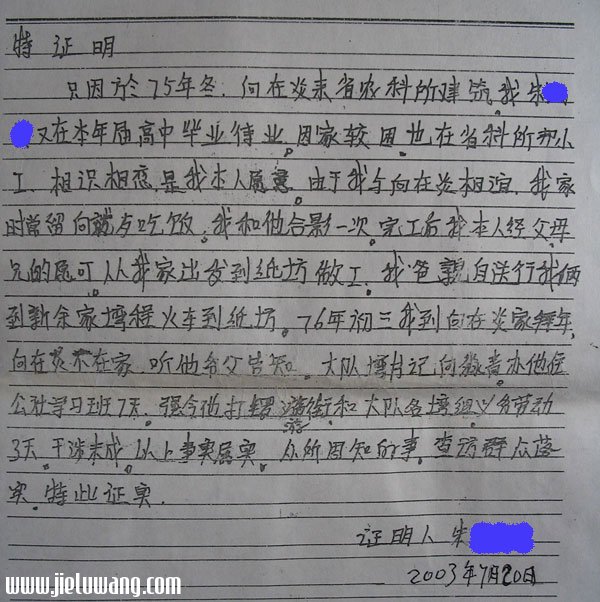 特证明
只因於75年冬.向在炎来省农科所建筑.我朱
又在本年届高中毕业待业.因家较困.也在省科所邦小
工.相识相恋.是我本人属意.由于我与向在炎相谊.我家
时曾留向就与吃饭.我和他合影一次.完工后我本人经父母
兄的愿可.从我家出发到纸坊做工.我爸亲自送行我俩
到新余家塆程火车到纸坊.76年初三我到向在炎家拜年.
向在炎不在家.听他爷父告知.大队塆月记向 办他住
公社学习班7天.强令他打锣游街.和大队各塆组义务劳动
3天.干涉未成.以上事实属实.众所因知的事.查访群众落
实.特此证实.
证明人朱
2003年7月20日
www.jieluwang.com